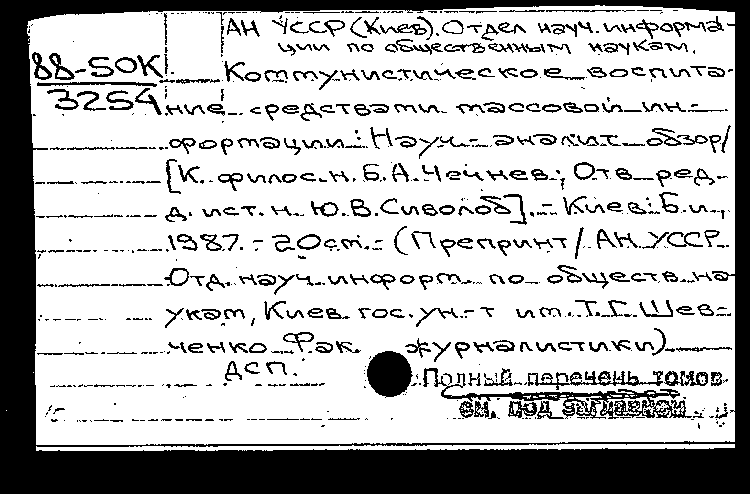 АН УССР (Киев). Отдел науч. информа-
ции по общественным наукам.
88-50K
3254
Коммунистическое воспита-
ние средствами массовой ин-
формации: Науч.-аналит. обзор/
[К. филос. н. Б.А. Чечнев; Отв. ред.
д. ист. н. Ю.В. Сиволоб]. - Киев: Б.и.,
1987. - 20см. - (Препринт / АН УССР.
Отд. науч. информ. по обществ. на-
укам, Киев. гос. ун-т им. Т.Г. Шев-
ченко. Фак. журналистики)
ДСП.
Полный перечень томов
см. под заглавием